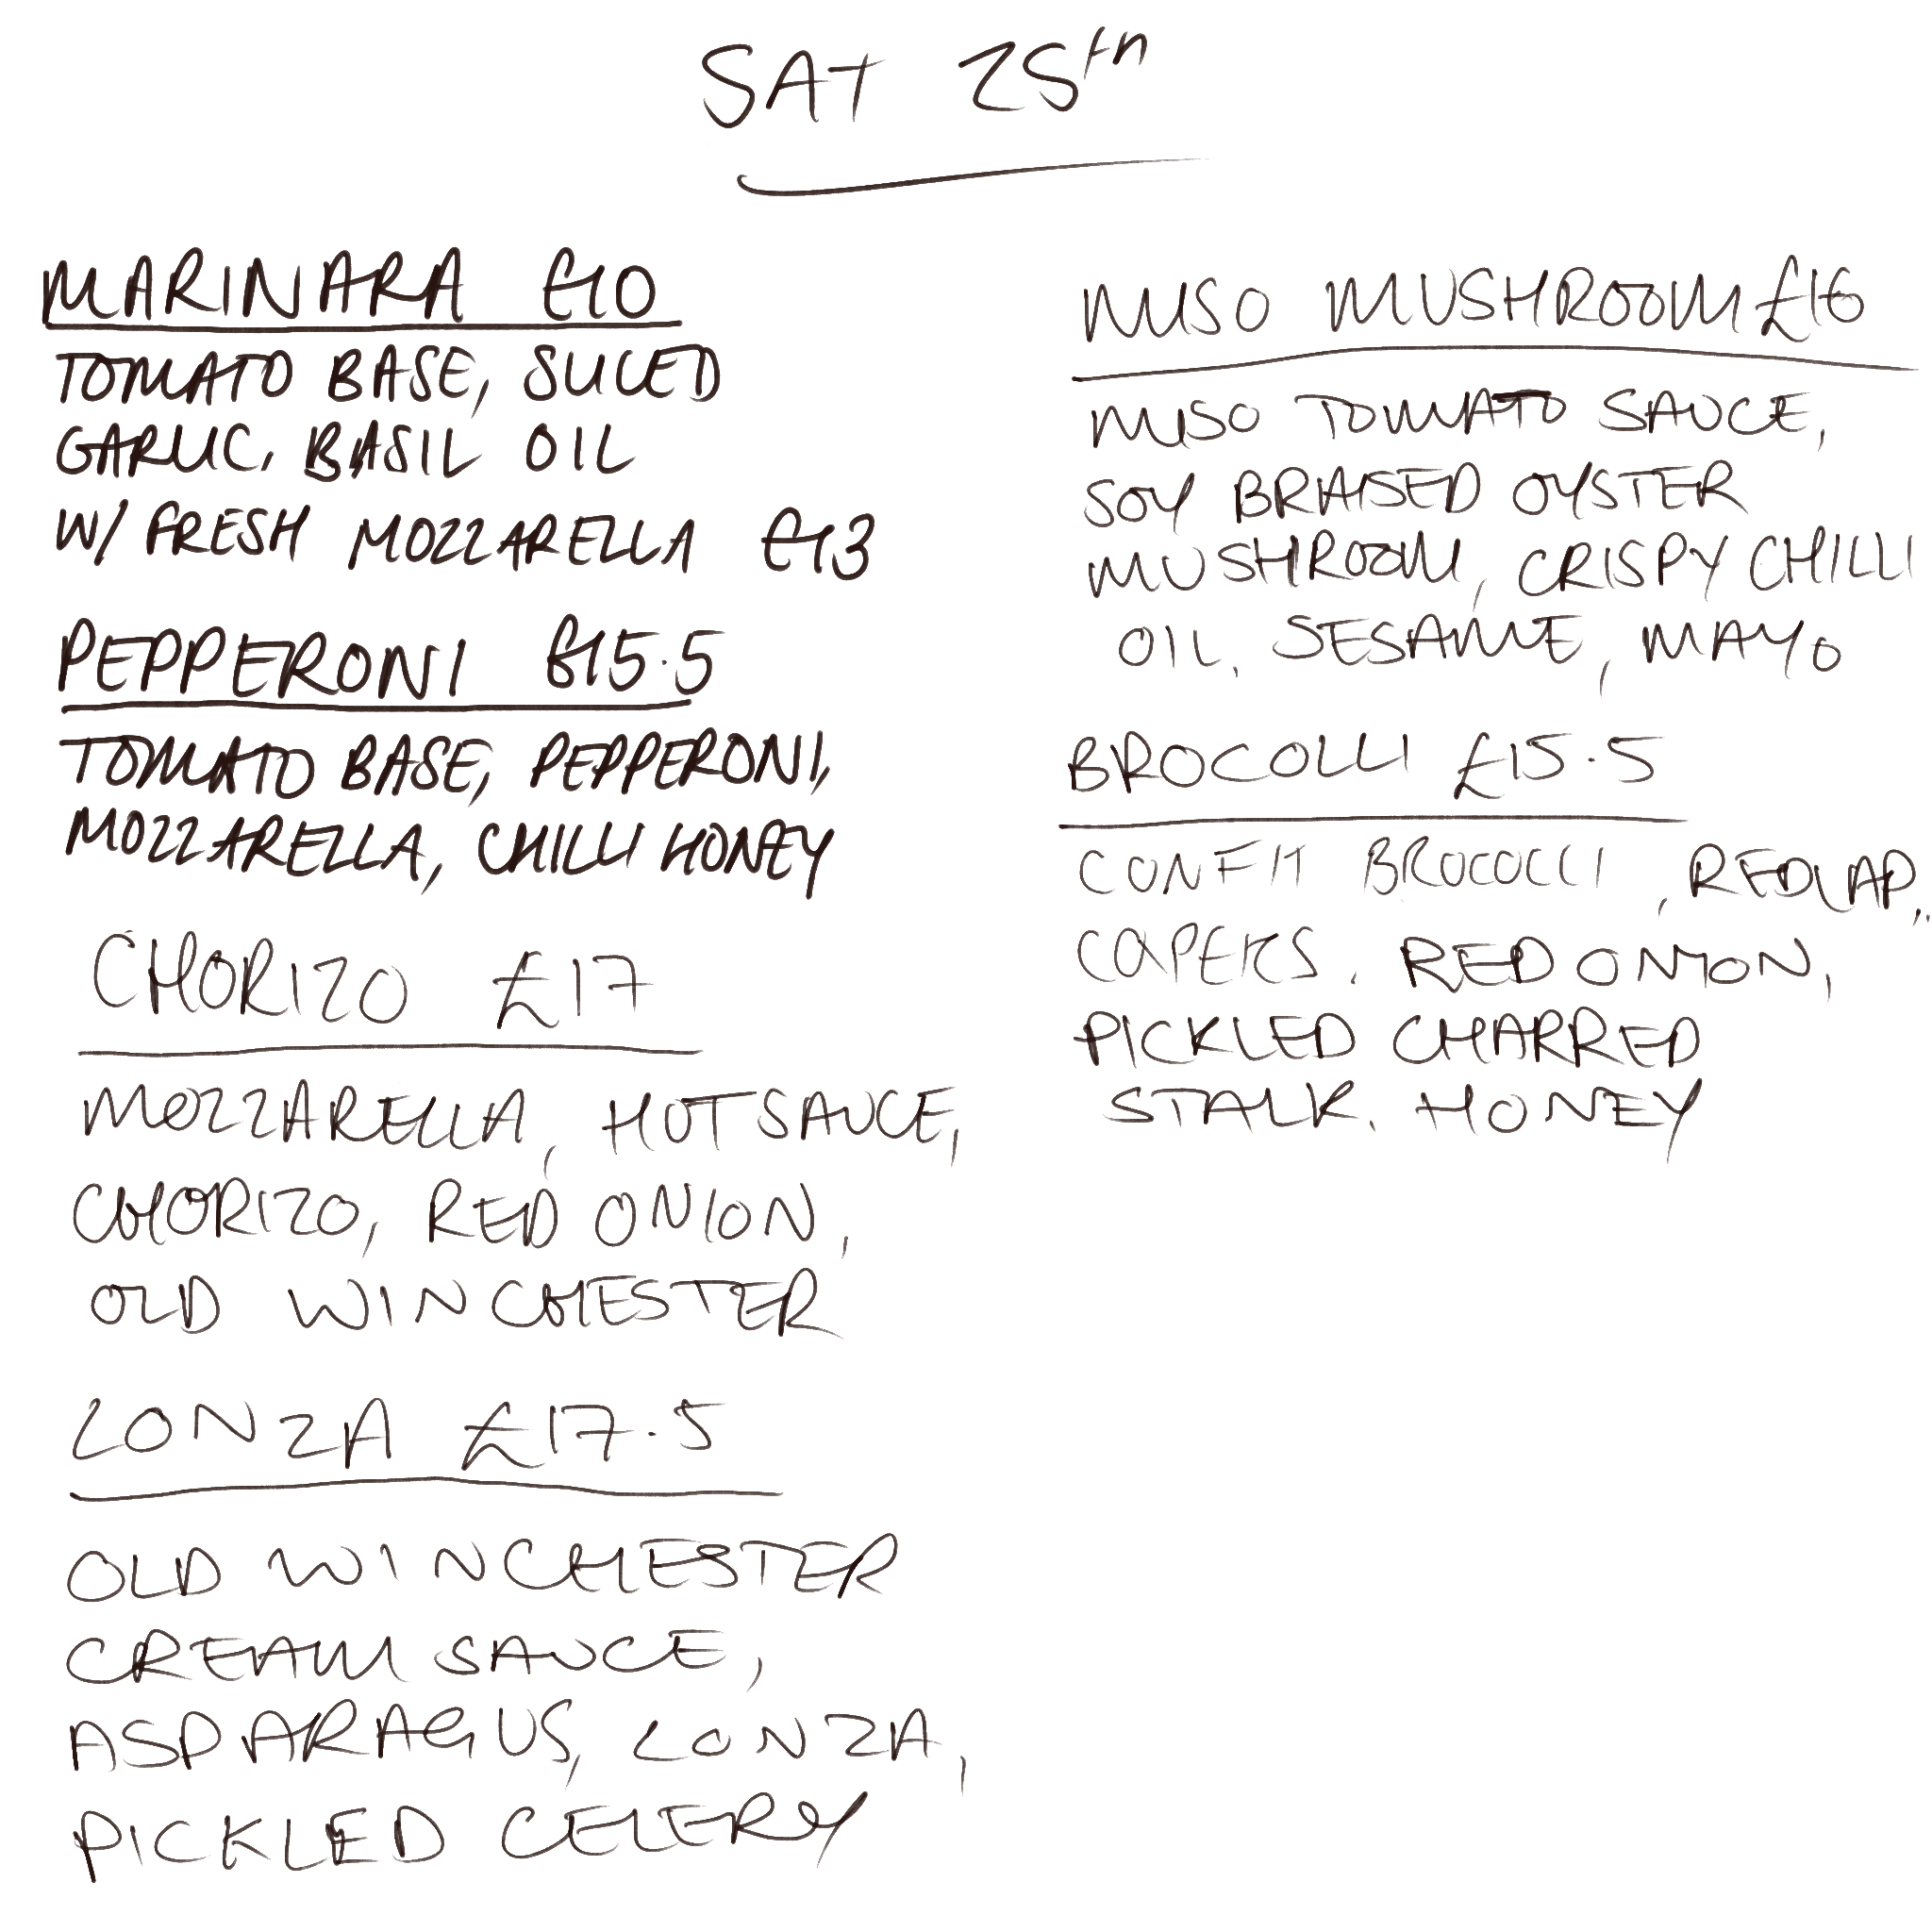 SAT 25th
MARINARA £10
TOMATO BASE, SLICED
GARLIC, BASIL OIL
W/ FRESH MOZZARELLA £13
PEPPERONI £15.5
TOMATO BASE, PEPPERONI,
MOZZARELLA, CHILLI HONEY
CHORIZO £17
MOZZARELLA, HOT SAUCE,
CHORIZO, RED ONION,
OLD WINCHESTER
LONZA £17.5
OLD WINCHESTER
CREAM SAUCE,
ASPARAGUS, LONZA,
PICKLED CELERY
MISO MUSHROOM £16
MISO TOMATO SAUCE,
SOY BRAISED OYSTER
MUSHROOM, CRISPY CHILLI
OIL, SESAME, MAYO
BROCOLLI £15.5
CONFIT BROCOCLI, REDLAP,
CAPERS, RED ONION,
PICKLED CHARRED
STALK, HONEY